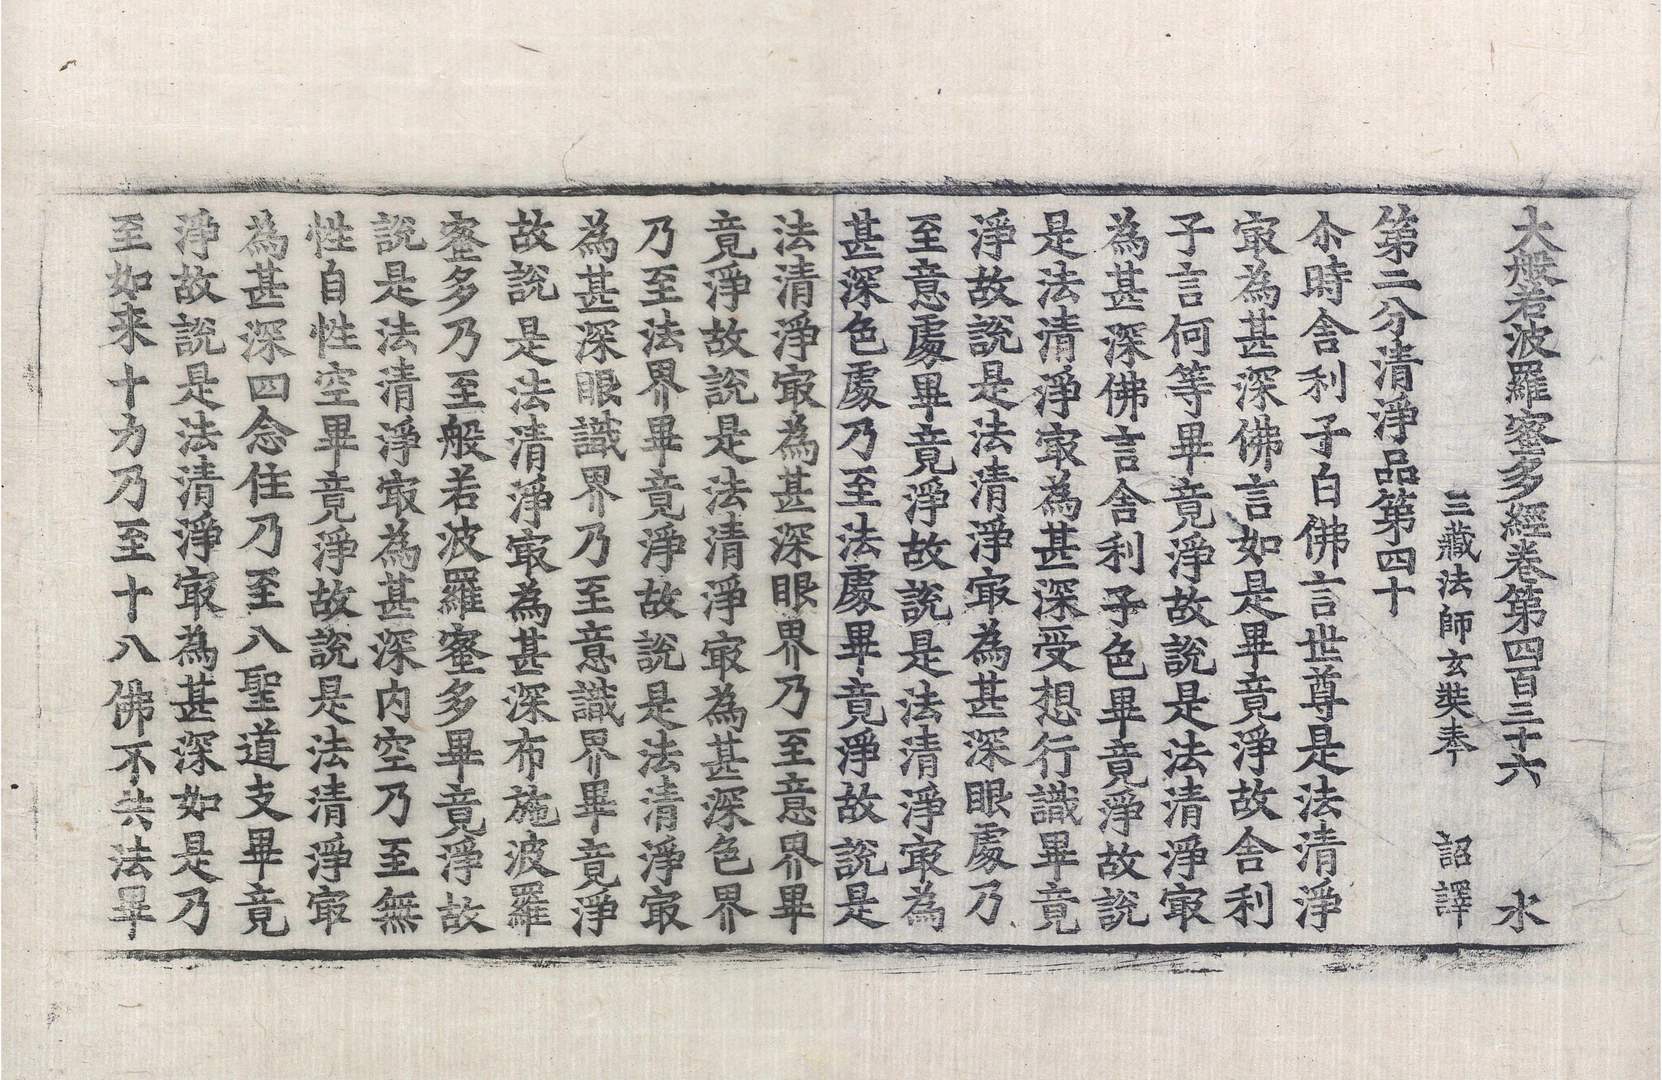 大般若波羅蜜多經卷第四百三十六 水
三藏法師玄奘奉 詔譯
第二分清淨品第四十
尒時舍利子白佛言世尊是法清淨
㝡為甚深佛言如是畢竟淨故舍利
子言何等畢竟淨故說是法清淨㝡
為甚深佛言舍利子色畢竟淨故說
是法清淨㝡為甚深受想行識畢竟
淨故說是法清淨㝡為甚深眼處乃
至意處畢竟淨故說是法清淨㝡為
甚深色處乃至法處畢竟淨故說是
法清淨㝡為甚深眼界乃至意界畢
竟淨故說是法清淨㝡為甚深色界
乃至法界畢竟淨故說是法清淨㝡
為甚深眼識界乃至意識界畢竟淨
故說是法清淨㝡為甚深布施波羅
蜜多乃至般若波羅蜜多畢竟淨故
說是法清淨㝡為甚深内空乃至無
性自性空畢竟淨故說是法清淨㝡
為甚深四念住乃至八聖道支畢竟
淨故說是法清淨㝡為甚深如是乃
至如来十力乃至十八佛不共法畢